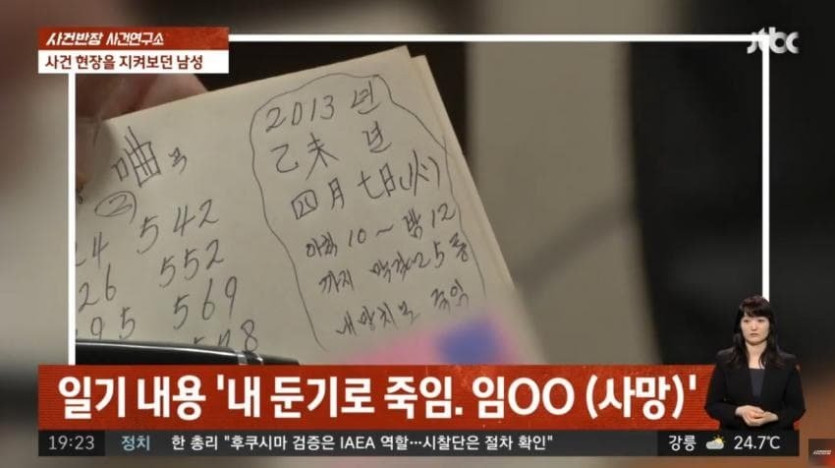 사건반장 사건연구소
jtbc
사건 현장을 지켜보던 남성
2013 년
乙未 년
四月 七日(火)
아침 10 ~ 밤 12
까지 막걸리 5통
내 망치로 죽임
24 542
26 552
95 569
일기 내용 '내 둔기로 죽임. 임OO (사망)'
19:23 정치 한 총리 "후쿠시마 검증은 IAEA 역할…시찰단은 절차 확인" 강릉 24.7℃